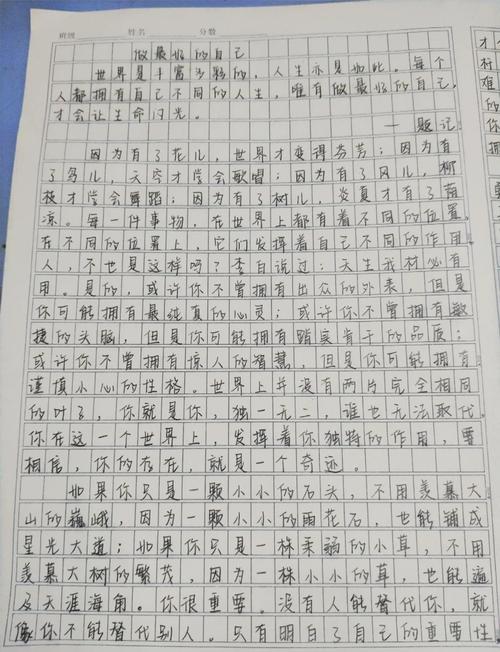 班级 姓名 分数
做最好的自己
世界是丰富多彩的，人生亦是如此。每个
人都拥有自己不同的人生，唯有做最好的自己，
才会让生命闪光。
——题记
因为有了花儿，世界才变得芬芳；因为有
了鸟儿，天空才学会歌唱；因为有了风儿，柳
枝才学会舞蹈；因为有了树儿，炎夏才有了荫
凉。每一件事物，在世界上都有着不同的位置。
在不同的位置上，它们发挥着自己不同的作用。
人，不也是这样吗？李白说过：天生我材必有
用。是的，或许你不曾拥有出众的外表，但是
你可能拥有最纯真的心灵；或许你不曾拥有敏
捷的头脑，但是你可能拥有踏实肯干的品质；
或许你不曾拥有惊人的智慧，但是你可能拥有
谨慎小心的性格。世界上并没有两片完全相同
的叶子，你就是你，独一无二，谁也无法取代。
你在这一个世界上，发挥着你独特的作用，要
相信，你的存在，就是一个奇迹。
如果你只是一颗小小的石头，不用羡慕大
山的巍峨，因为一颗小小的雨花石，也能铺成
星光大道；如果你只是一株柔弱的小草，不用
羡慕大树的繁茂，因为一株小小的草，也能遍
及天涯海角。你很重要。没有人能替代你，就
像你不能替代别人。只有明白了自己的重要性，